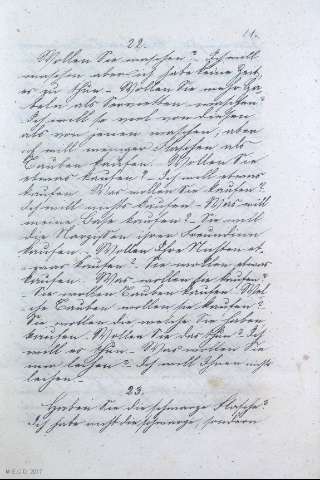 11.
22.
Wollen Sie waschen? Ich will
waschen aber ich habe keine Zeit,
es zu thun. – Wollen Sie mehr Ga-
beln als Servietten waschen?
Ich will so viel von diesen
als von jenen waschen, aber
ich will weniger Flaschen als
Tauben kaufen. Wollen Sie
etwas kaufen? – Ich will etwas
kaufen. Was wollen Sie kaufen?
Ich will nichts kaufen. – Was will
meine Base kaufen? – Sie will
die Narzissen ihrer Freundinn
kaufen. – Wollen Ihre Nichten et-
was kaufen? Sie wollen etwas
kaufen. Was wollen sie kaufen?
– Sie wollen Tauben kaufen. Wel-
che Tauben wollen sie kaufen?
Sie wollen die welche Sie haben
kaufen. Wollen Sie das thun? Ich
will es thun. – Was wollen Sie
mir leihen? Ich will Ihnen nichts
leihen. –
23.
Haben Sie die schwarze Flasche?
Ich habe nicht die schwarze, sondern
M.E.C.D. 2017